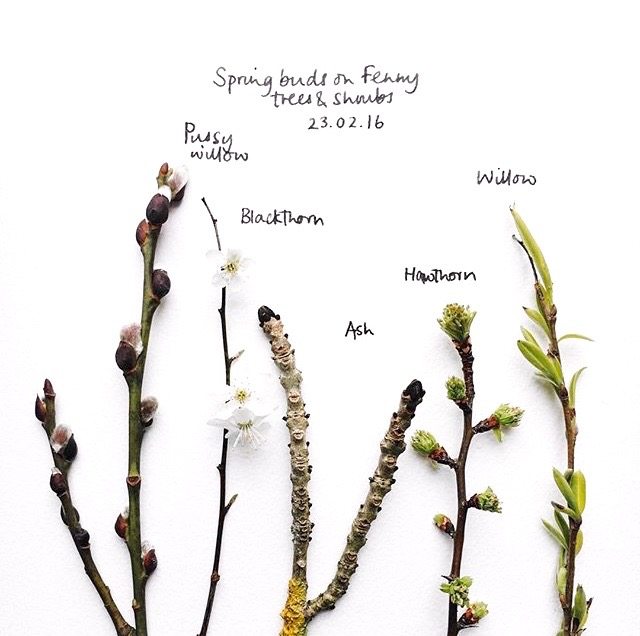 Spring buds on Fenny
trees & shrubs
23.02.16
Pussy
willow
Willow
Blackthorn
Hawthorn
Ash